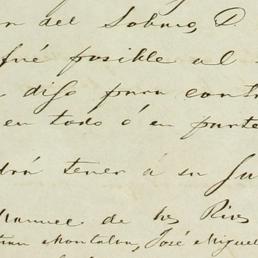 n del Sobno, D.
fué posible al
n dijo para cont
en todo ó en parte
drá tener á su fa
Manuel de los Rios
tian Montalvo, José Miguel